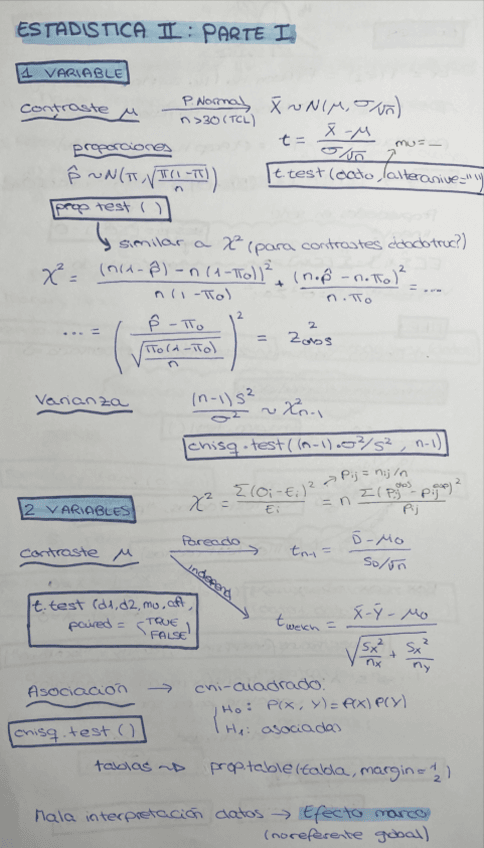 ESTADISTICA II: PARTE I
1 VARIABLE
Contraste μ P. Normal n>30 (TCL) X̄ ~ N(μ, σ/√n)
t = (X̄ - μ) / (σ/√n) mu = _
proporciones
p̂ ~ N(π, √(π(1-π)/n)) t.test(dato, alteranive="")
prop test ( )
similar a χ² (para contrastes
χ² = (n(1-p̂) - n(1-π₀))² / n(1-π₀) + (n·p̂ - n·π₀)² / n·π₀ = ...
... = ( (p̂ - π₀) / √(π₀(1-π₀)/n) )² = Z²obs
Varianza (n-1)S²/σ² ~ χ²n-1
chisq.test((n-1)·σ²/s², n-1)
pij = nij/n
2 VARIABLES χ² = Σ(Oi - Ei)²/Ei = n Σ(Pij^obs - Pij^esp)²/Pij
Contraste μ Pareado tn-1 = (D̄ - μ₀) / (SD/√n)
Independ
t.test (d1, d2, mo, alt, paired = (TRUE FALSE)
twelch = (X̄ - Ȳ - μ₀) / √(Sx²/nx + Sx²/ny)
Asociación → chi-cuadrado:
H₀: P(X, Y) = P(X) P(Y)
chisq.test.() H₁: asociadas
tablas ~▷ prop table(tabla, margin = 1/2)
Mala interpretación datos → Efecto marco
(no referente global)